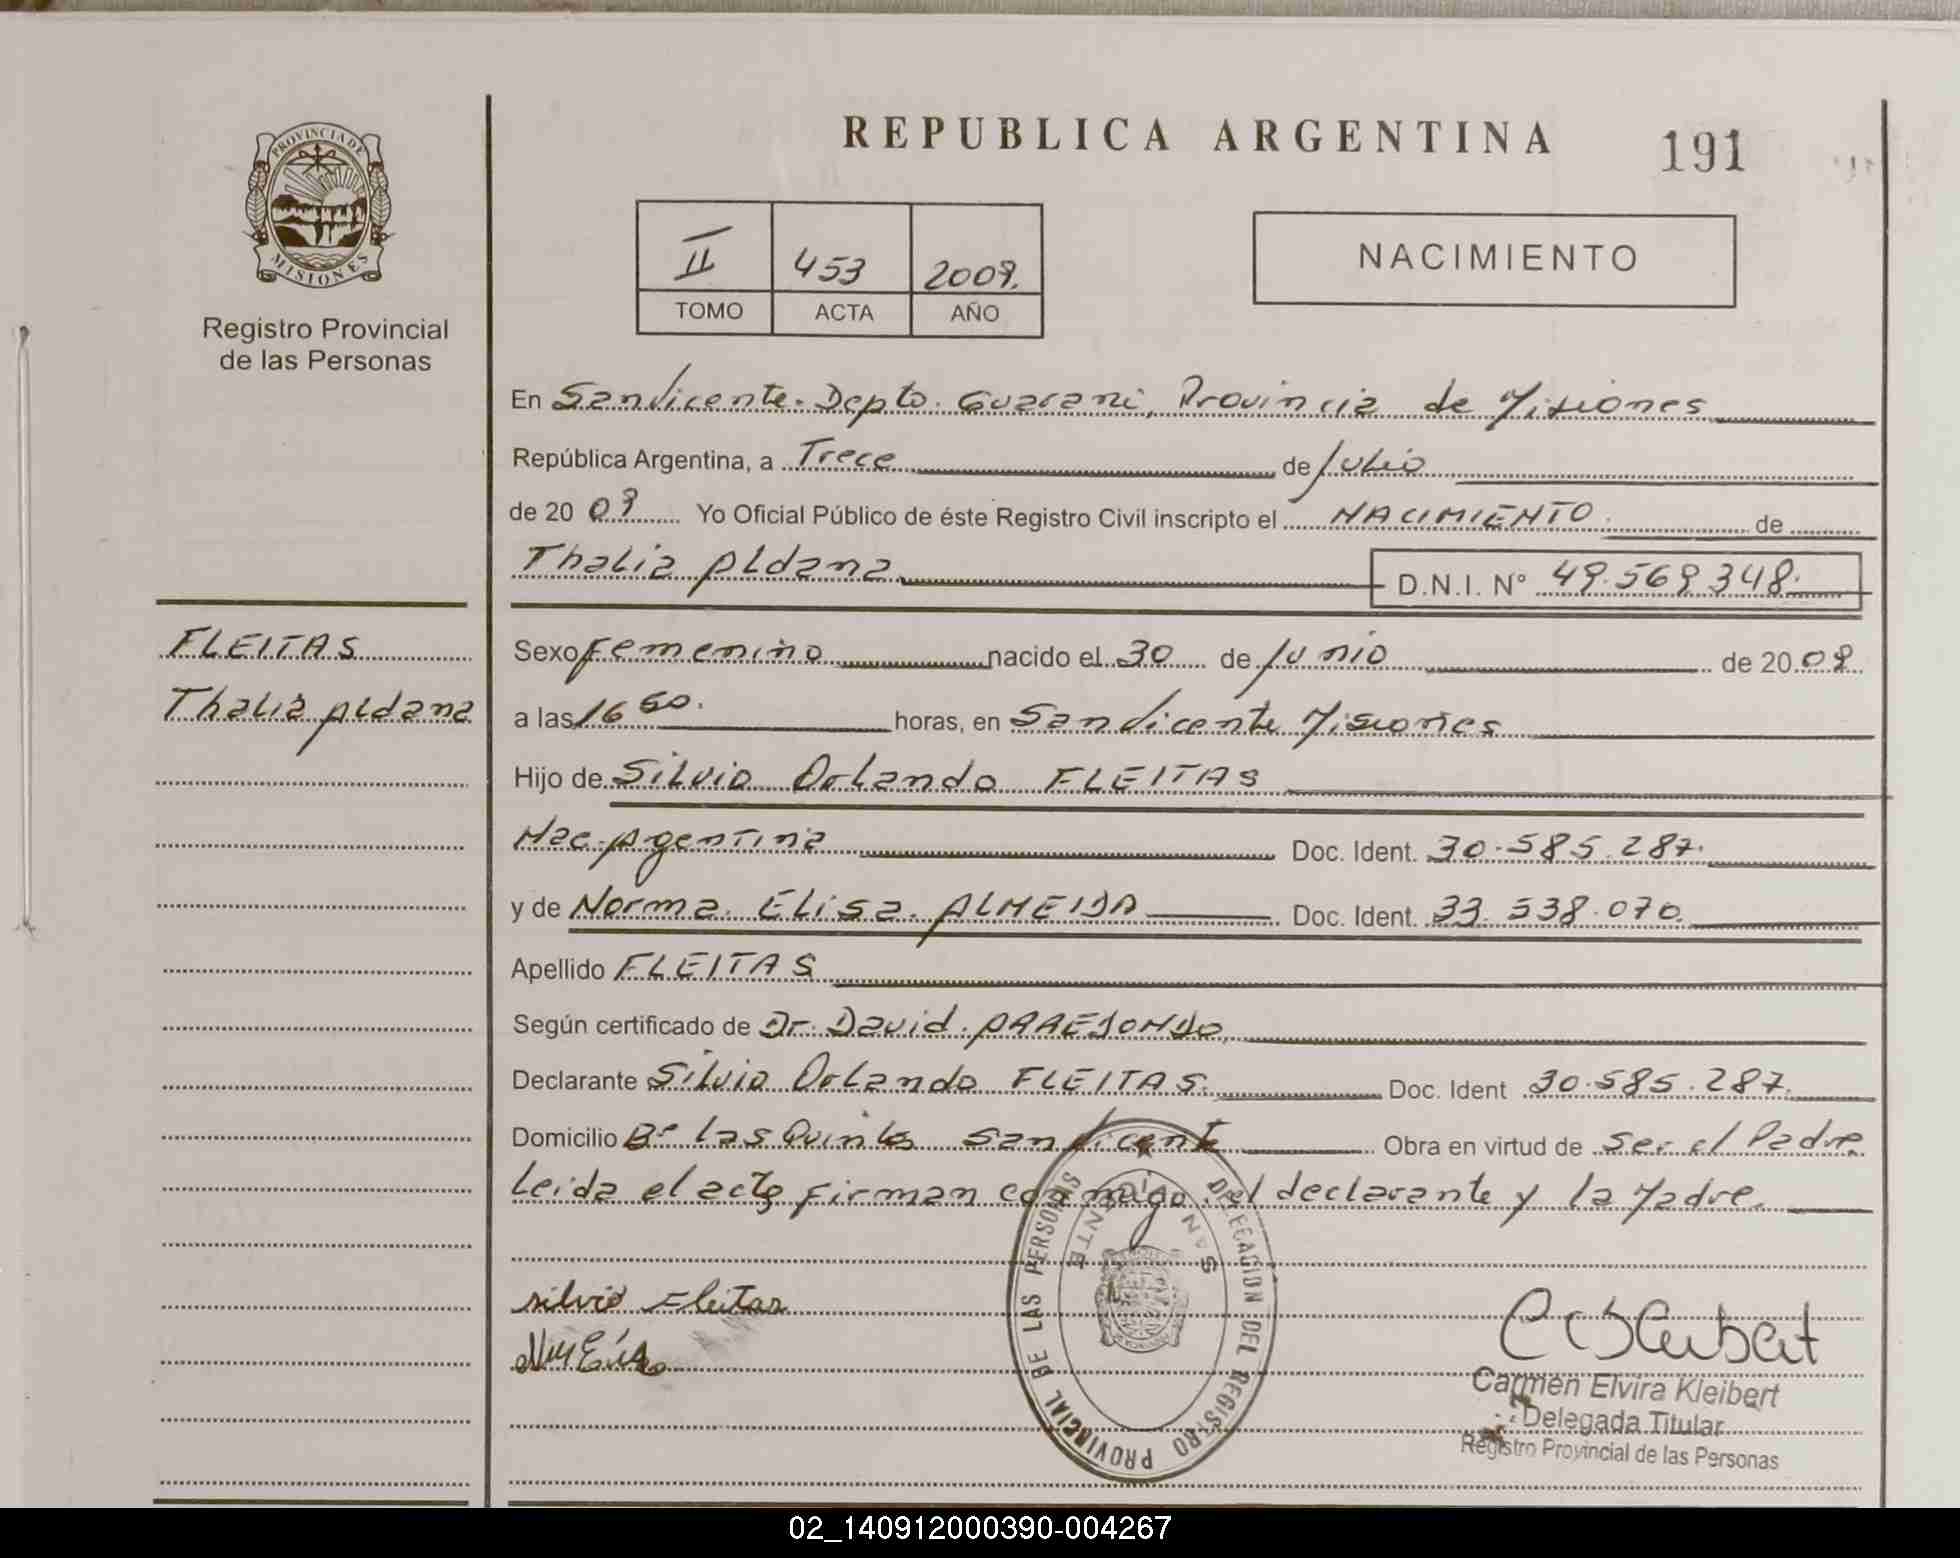 REPUBLICA ARGENTINA
191
PROVINCIA DE
MISIONES
Registro Provincial
de las Personas
II 453 2009.
TOMO ACTA AÑO
NACIMIENTO
En San Vicente. Depto. Guarani, Provincia de Misiones
República Argentina, a Trece de Julio
de 20 09 Yo Oficial Público de éste Registro Civil inscripto el NACIMIENTO. de
Thalia Aldana D.N.I. N° 49.569.348.
FLEITAS
Thalia Aldana
Sexo Femenino nacido el 30 de Junio de 20 09
a las 16 horas, en San Vicente Misiones
Hijo de Silvio Orlando FLEITAS
Nac. Agentina Doc. Ident. 30.585.287.
y de Norma Elisa ALMEIDA Doc. Ident. 33.538.070.
Apellido FLEITAS
Según certificado de Dr. David
Declarante Silvio Orlando FLEITAS. Doc. Ident 30.585.287.
Domicilio B° las Quintas San Vicente Obra en virtud de Ser el Padre.
Leida el acta firman conmigo el declarante y la Madre.
silvio Fleitas
DELEGACION DEL REGISTRO PROVINCIAL DE LAS PERSONAS
SAN VICENTE
Carmen Elvira Kleibert
Delegada Titular
Registro Provincial de las Personas
02_140912000390-004267